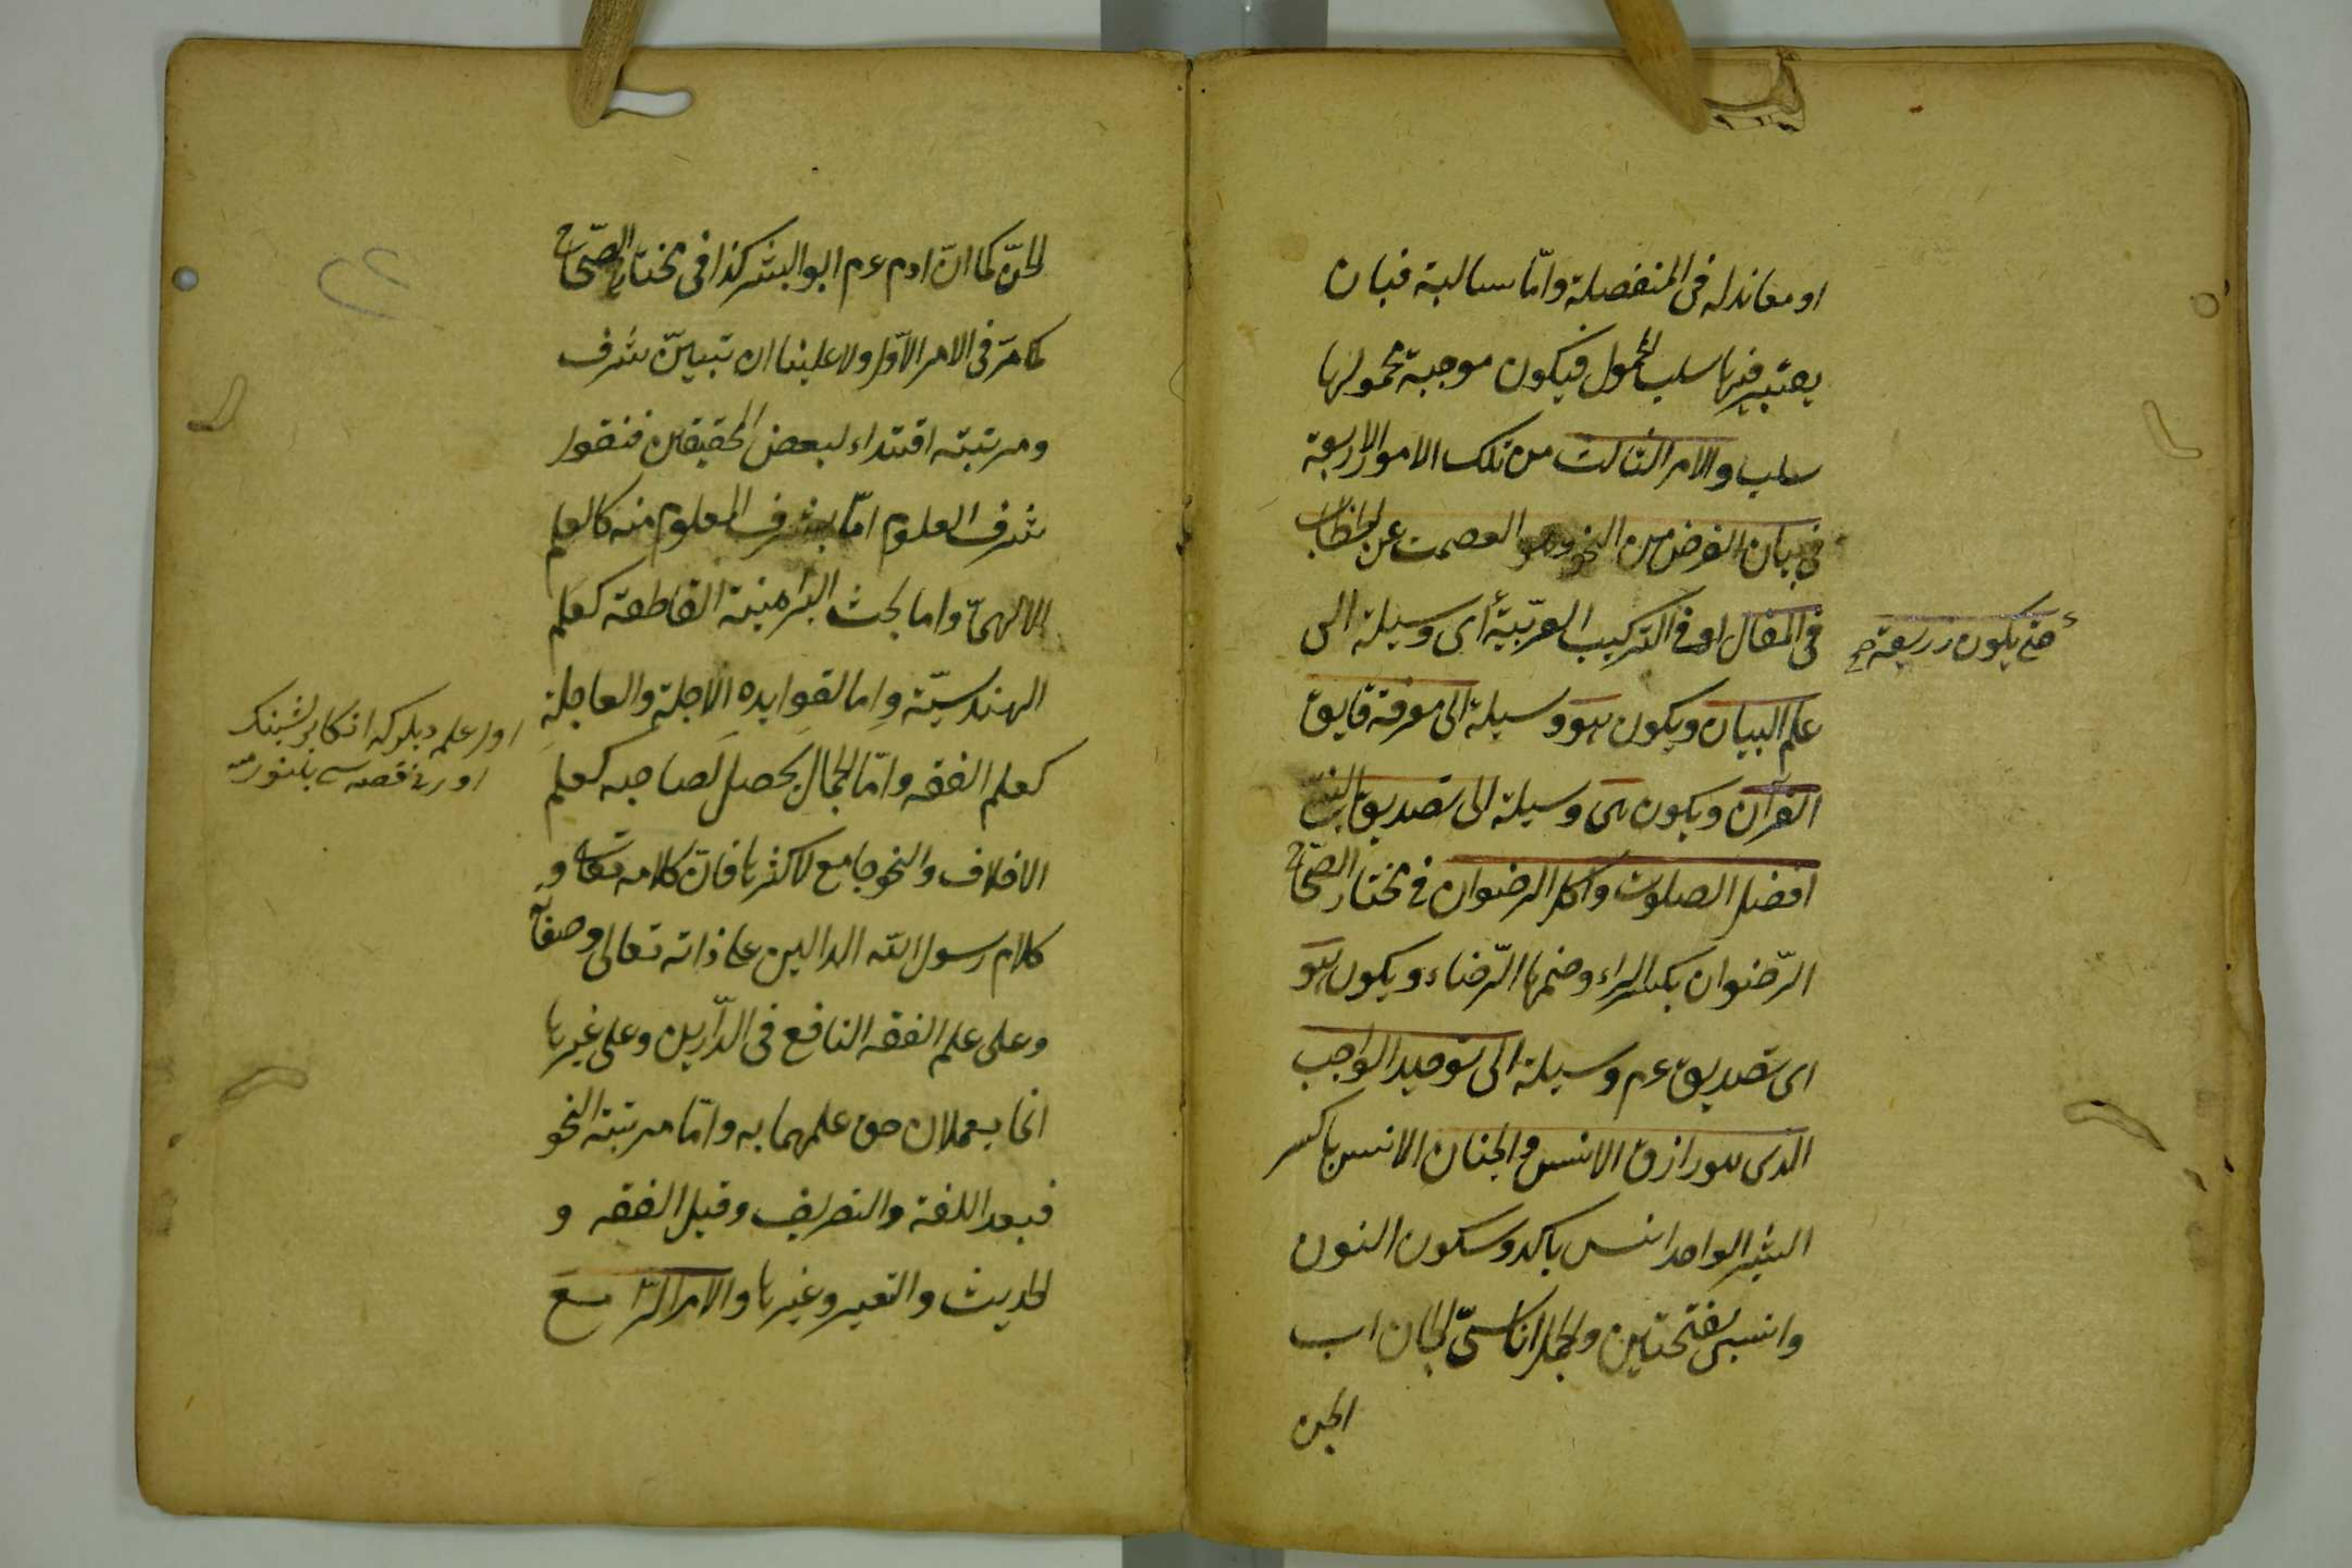 او معاند له فى المنفصلة وامّا سالبة فبان
يعتبر فيها سلب المحمول فيكون موجبة محمولها
سلب والامر الثالث من تلك الامور الاربعة
فى بيان الغرض من النحو وهو العصمت عن الخطاء
فى المقال او فى التركيب العربيّة أى وسيلة الى
حتى يكون ذريعة صح
علم البيان ويكون هو وسيلة الى معرفة قايق
القرآن ويكون هى وسيلة الى تصديق النبىّ
افضل الصلوت واكمل الرضوان فى مختار الصّحاح
الرّضوان بكسر الراء وضمها الرّضاء ويكون هو
اى تصديق عم وسيلة الى توحيد الواجب
الذى هو رازق الانس والجنان الانس باكسر
البشر الواحد انس باكد وسكون النون
وانسى بفتحتين والجمل اناسىّ الجان اب
الجن
الجنّ كما انّ ادم عم ابو البشر كذا فى مختار الصّحاح
كما مرّ فى الامر الاوّل ولا علينا ان تبيين شرف
ومرتبته اقتداء لبعض المحققين فنقول
شرف العلوم امّا بشرف المعلوم منه كالعلم
الالهىّ واما بحث البراهينة القاطعة كعلم
الهندسيّة واما لفوايده الاجلة والعاجلة
كعلم الفقه وامّا الجمال يحصل لصاحبه كعلم
الاخلاف والنحو جامع لاكثرها فانّ كلامه تعالى و
كلام رسول الله الدالين على ذاته تعالى وصفاته
وعلى علم الفقه النافع فى الدّارين وعلى غيرها
انما يعملان حق علمهما به وامّا مرتبة النحو
فبعد اللغة والتصريف وقبل الفقه و
الحديث والتعبير وغيرها والامر الرابع
اول علم ديلركه